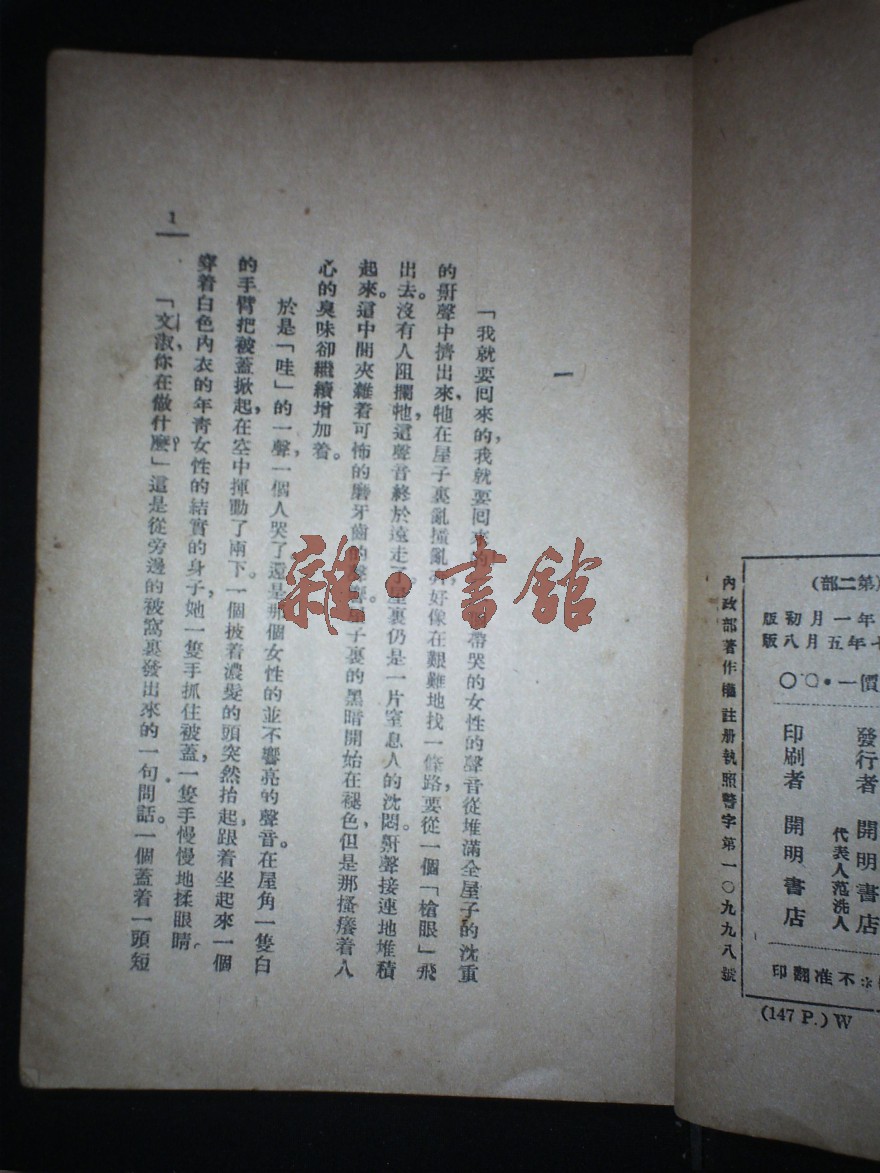 一
「我就要回來的,我就要回來的
帶哭的女性的聲音從堆滿全屋子的沈重
的鼾聲中擠出來,牠在屋子裏亂撞亂
好像在艱難地找一條路,要從一個「槍眼」飛
出去。沒有人阻攔牠,這聲音終於遠走了。屋裏仍是一片窒息人的沈悶。鼾聲接連地堆積
起來。這中間夾雜着可怖的磨牙齒的聲響。屋子裏的黑暗開始在褪色,但是那搔癢着人
心的臭味卻繼續增加着。
於是「哇」的一聲,一個人哭了,還是那個女性的並不響亮的聲音。在屋角一隻白
的手臂把被蓋掀起,在空中揮動了兩下。一個披着濃髮的頭突然抬起,跟着坐起來一個
穿着白色內衣的年青女性的結實的身子,她一隻手抓住被蓋,一隻手慢慢地揉眼睛。
「文淑,你在做什麼?」這是從旁邊的被窩裏發出來的一句問話。一個蓋着一頭短
1
雜·書館
(第二部)
年一月初版
年五月八版
價一·〇〇
發行者 開明書店
代表人范洗人
印刷者 開明書店
不准翻印
內政部著作權註册執照警字第一〇九九八號
(147 P.) W